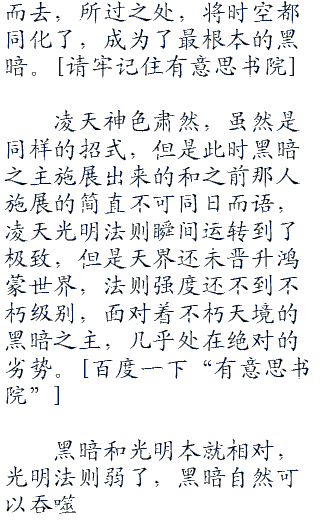 而去，所过之处，将时空都
同化了，成为了最根本的黑
暗。[请牢记住有意思书院]
凌天神色肃然，虽然是
同样的招式，但是此时黑暗
之主施展出来的和之前那人
施展的简直不可同日而语，
凌天光明法则瞬间运转到了
极致，但是天界还未晋升鸿
蒙世界，法则强度还不到不
朽级别，面对着不朽天境的
黑暗之主，几乎处在绝对的
劣势。[百度一下“有意思书
院”]
黑暗和光明本就相对，
光明法则弱了，黑暗自然可
以吞噬